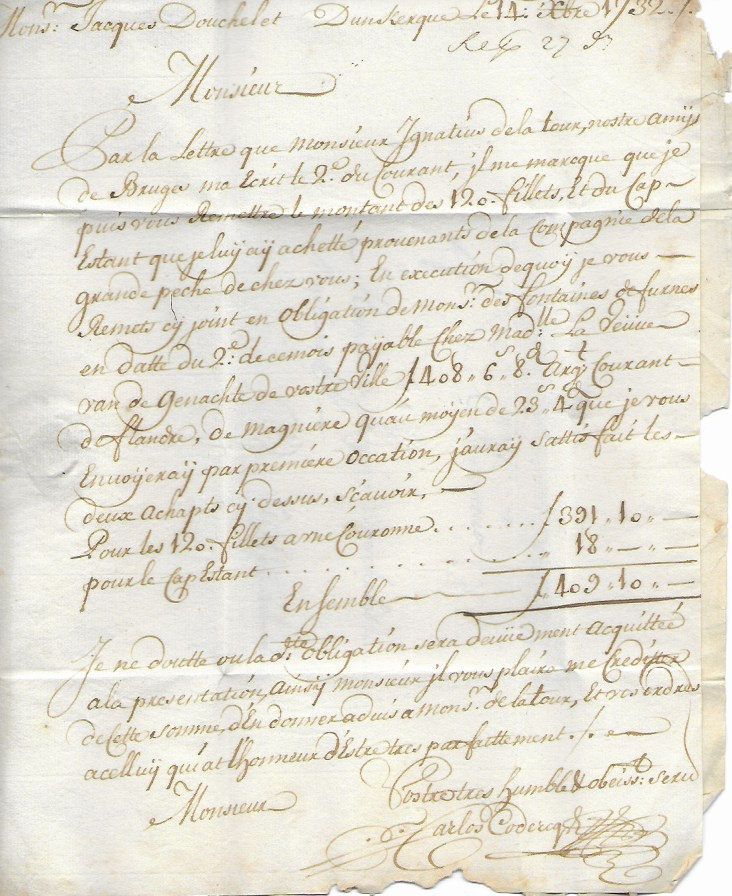 Mons.r Jacques Douchelet Dunkerque Le 14.e Xbre 1732 ./.
Monsieur
Par la Lettre que Monsieur Ignatius de la tour, nostre amys
de Bruge ma Ecrit le 2.e du Courant, jl me marcque que je
puis vous Remettre le montant des 120. fillets, Et du Cap-
Estant que je luy aÿ achetté provenants de la Compagnie de la
grande peche de chez vous; En execution dequoÿ je vous
Remets cy joint en Obligation de Mons.r des fontaines de furnes
en datte du 2.e de ce mois payable Chez Mad.lle La Veuve
van de Genachte de vostre Ville ƒ 408 „ 6 s „ 8. d Arg.t Courant
d flandre, de magniére qu'au moÿen de 23 s „ 4 d que je vous
Envoÿeraÿ par premiére Occation, j'auraÿ sattisfait les
deux achapts cy dessus, sçavoir,
Pour les 120. fillets a une Couronne . . . . . . . ƒ 391 „ 10 „ —
pour le CapEstant . . . . . . . . . . . . „ 18 „ — „ —
Ensemble ƒ 409 „ 10 „ —
Je ne doutte ou la d.tte Obligation sera deuüement Acquittée
a la presentation, Ainsÿ monsieur jl vous plaira me Crediter
de Cette somme, d'En donner aduis a Mons.r de la tour, Et vos ordres
a celluÿ qui at l'honneur d'Estre tres parfaittement ./.
Monsieur
Vostre tres humble & obeiss.t seru
Carlos Codercq